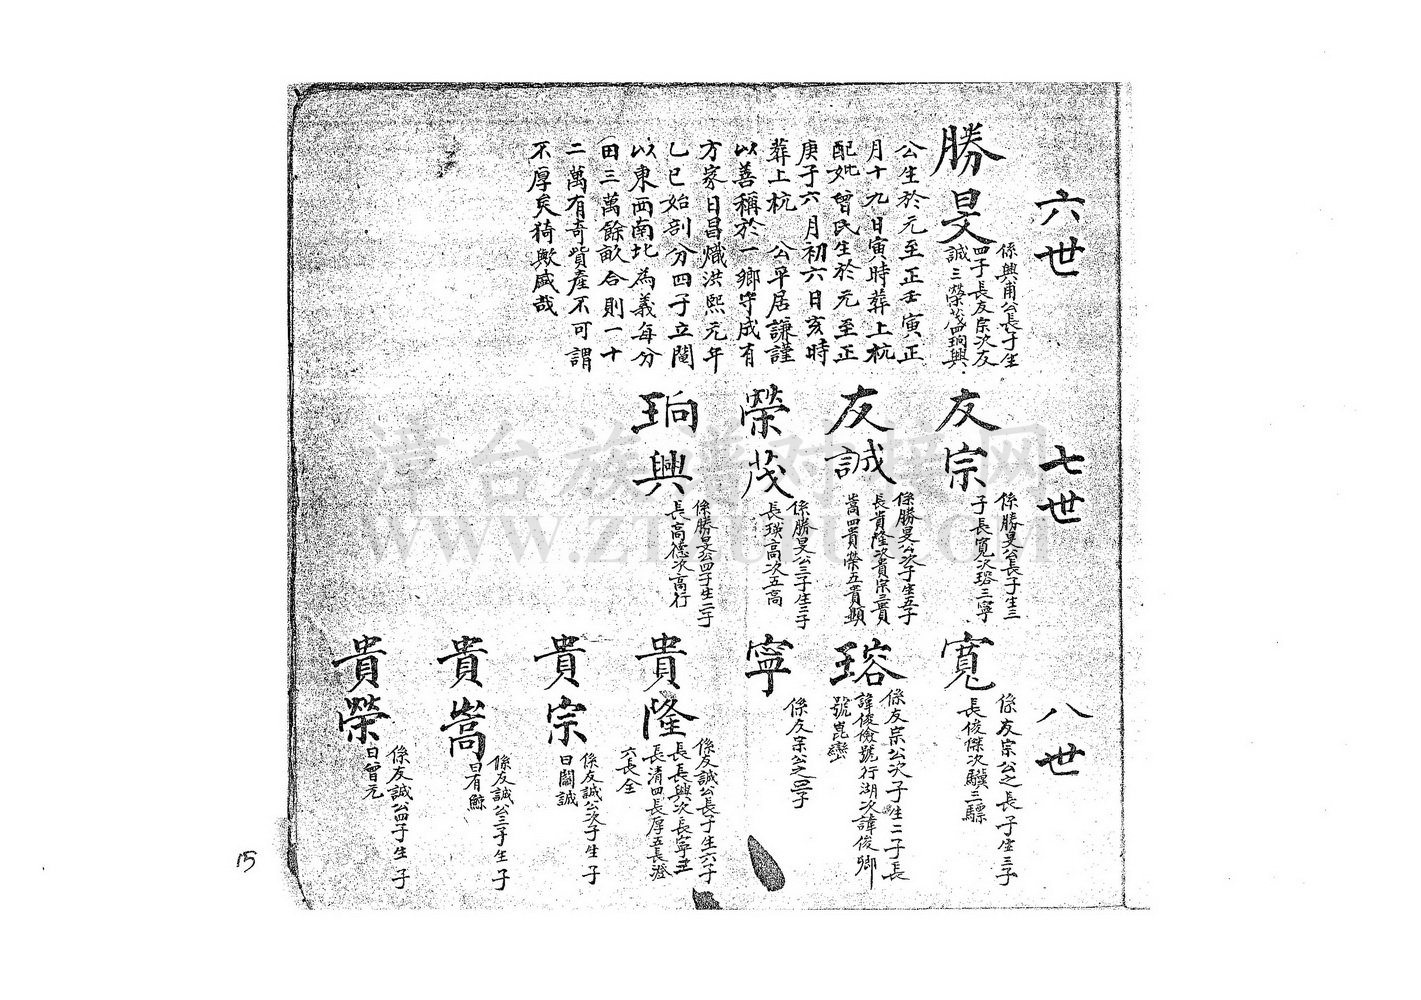 六世
勝旻
係興甫公長子生
四子長友宗次友
誠三榮茂四珦興
公生於元至正壬寅正
月十九日寅時葬上杭
配妣曾氏生於元至正
庚子六月初六日亥時
葬上杭 公平居謙謹
以善稱於一鄉守成有
方家日昌熾洪熙元年
乙巳始剖分四子立鬮
以東西南北為義每分
田三萬餘畝合則一十
二萬有奇貲產不可謂
不厚矣猗歟盛哉
七世
友宗
係勝旻公長子生三
子長寬次瑢三寧
友誠
係勝旻公次子生五子
長貴隆次貴宗三貴
嵩四貴榮五貴顯
榮茂
係勝旻公三子生二子
長瑛高次五高
珦興
係勝旻公四子生二子
長高德次高行
八世
寬
係友宗公之長子生三子
長俊傑次驥三驃
瑢
係友宗公次子生二子長
諱俊儉號行湖次諱俊卿
號崑巒
寧
係友宗公之三子
貴隆
係友誠公長子生六子
長長興次長寧三
長清四長厚五長澄
六長全
貴宗
係友誠公次子生子
曰閣誠
貴嵩
係友誠公三子生子
曰有鯨
貴榮
係友誠公四子生子
曰曾元
15
漳台族谱对接网